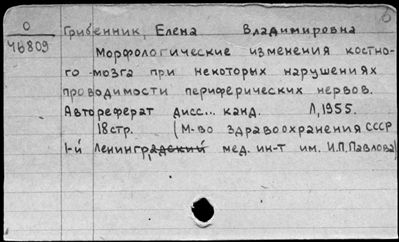 О
46809
Грибенник, Елена Владимировна
Морфологические изменения костно-
го мозга при некоторых нарушениях
проводимости периферических нервов.
Автореферат дисс... канд. Л, 1955.
18стр. (М-во здравоохранения СССР
1-й Ленинградский мед. ин-т им. И.П.Павлова)